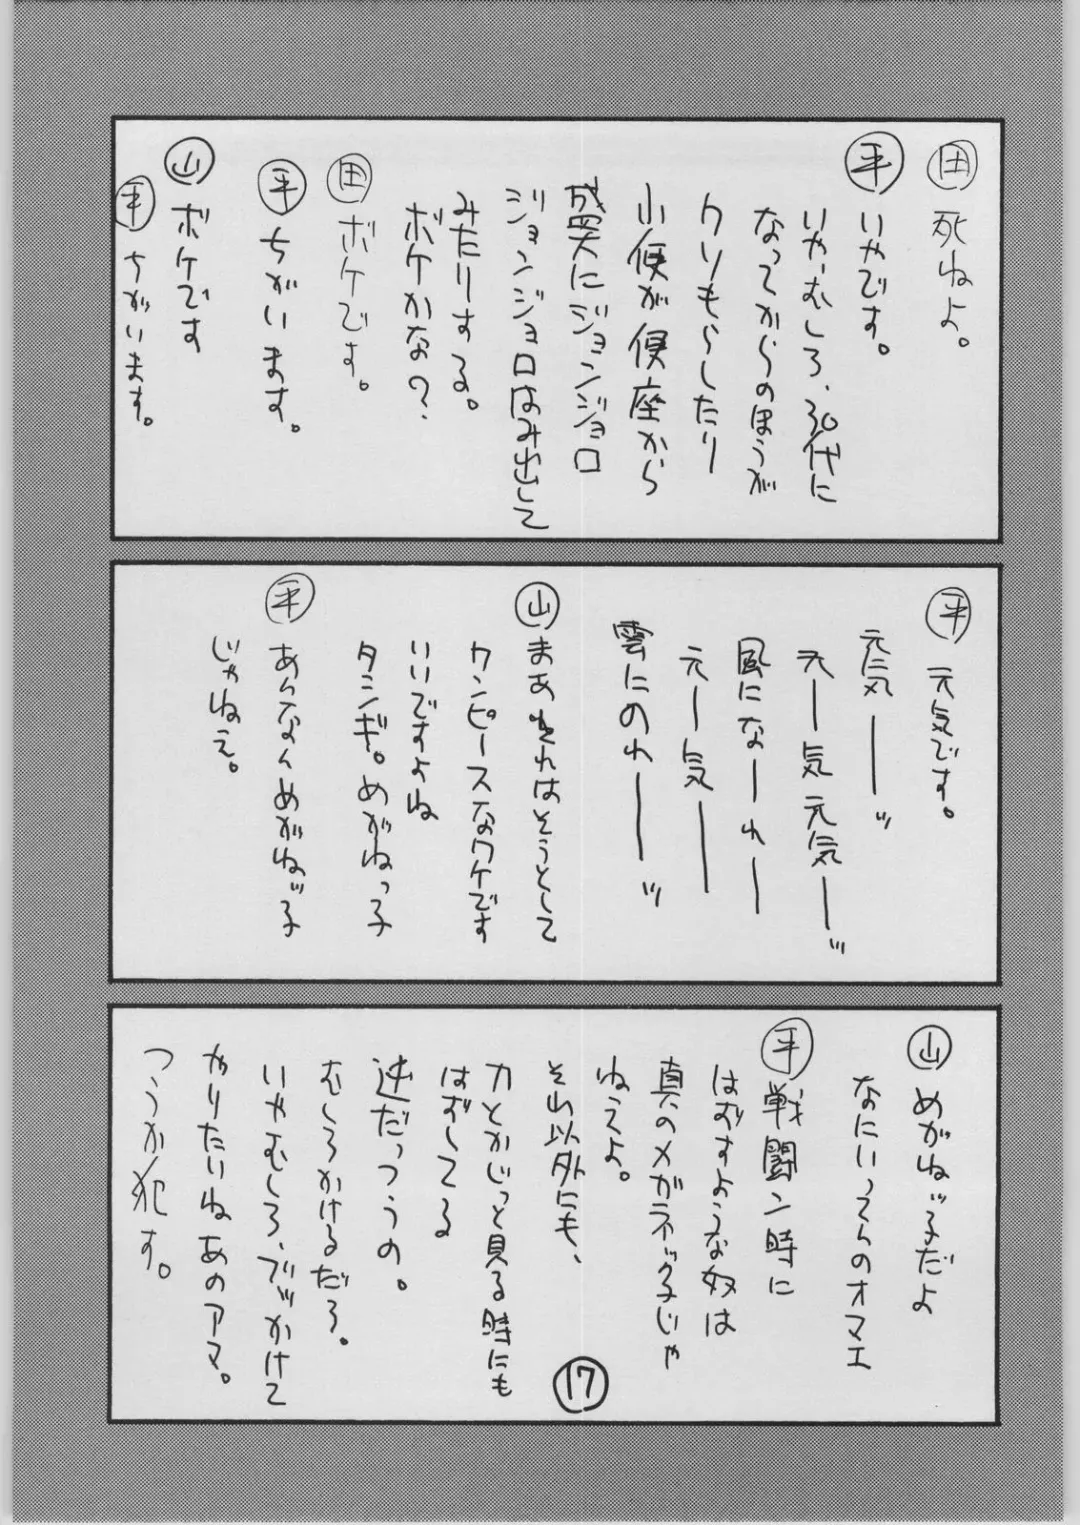 田 死ねよ。
平 いやです。
いやむしろ、30代に
なってからのほうが
クソもらしたり
小便が便座から
盛大にジョンジョロ
ジョンジョロはみ出して
みたりする。
ボケかな?
田 ボケです。
平 ちがいます。
山 ボケです
平 ちがいます。
平 元気です。
元気――ッ
元―気元気―ッ
風になーれー
元―気――
雲にのれ――ッ
山 まあそれはそうとして
ワンピースなワケです
いいですよね
タシギ。めがねっ子
平 あんなんめがねッ子
じゃねえ。
山 めがねッ子だよ
なにいってんのオマエ
平 戦闘ン時に
はずすような奴は
真のメガネッ子じゃ
ねえよ。
それ以外にも、
刀とかじっと見る時にも
はずしてる
逆だっつうの。
むしろかけるだろ。
いやむしろ、ブッかけて
やりたいねあのアマ。
つうか犯す。
17